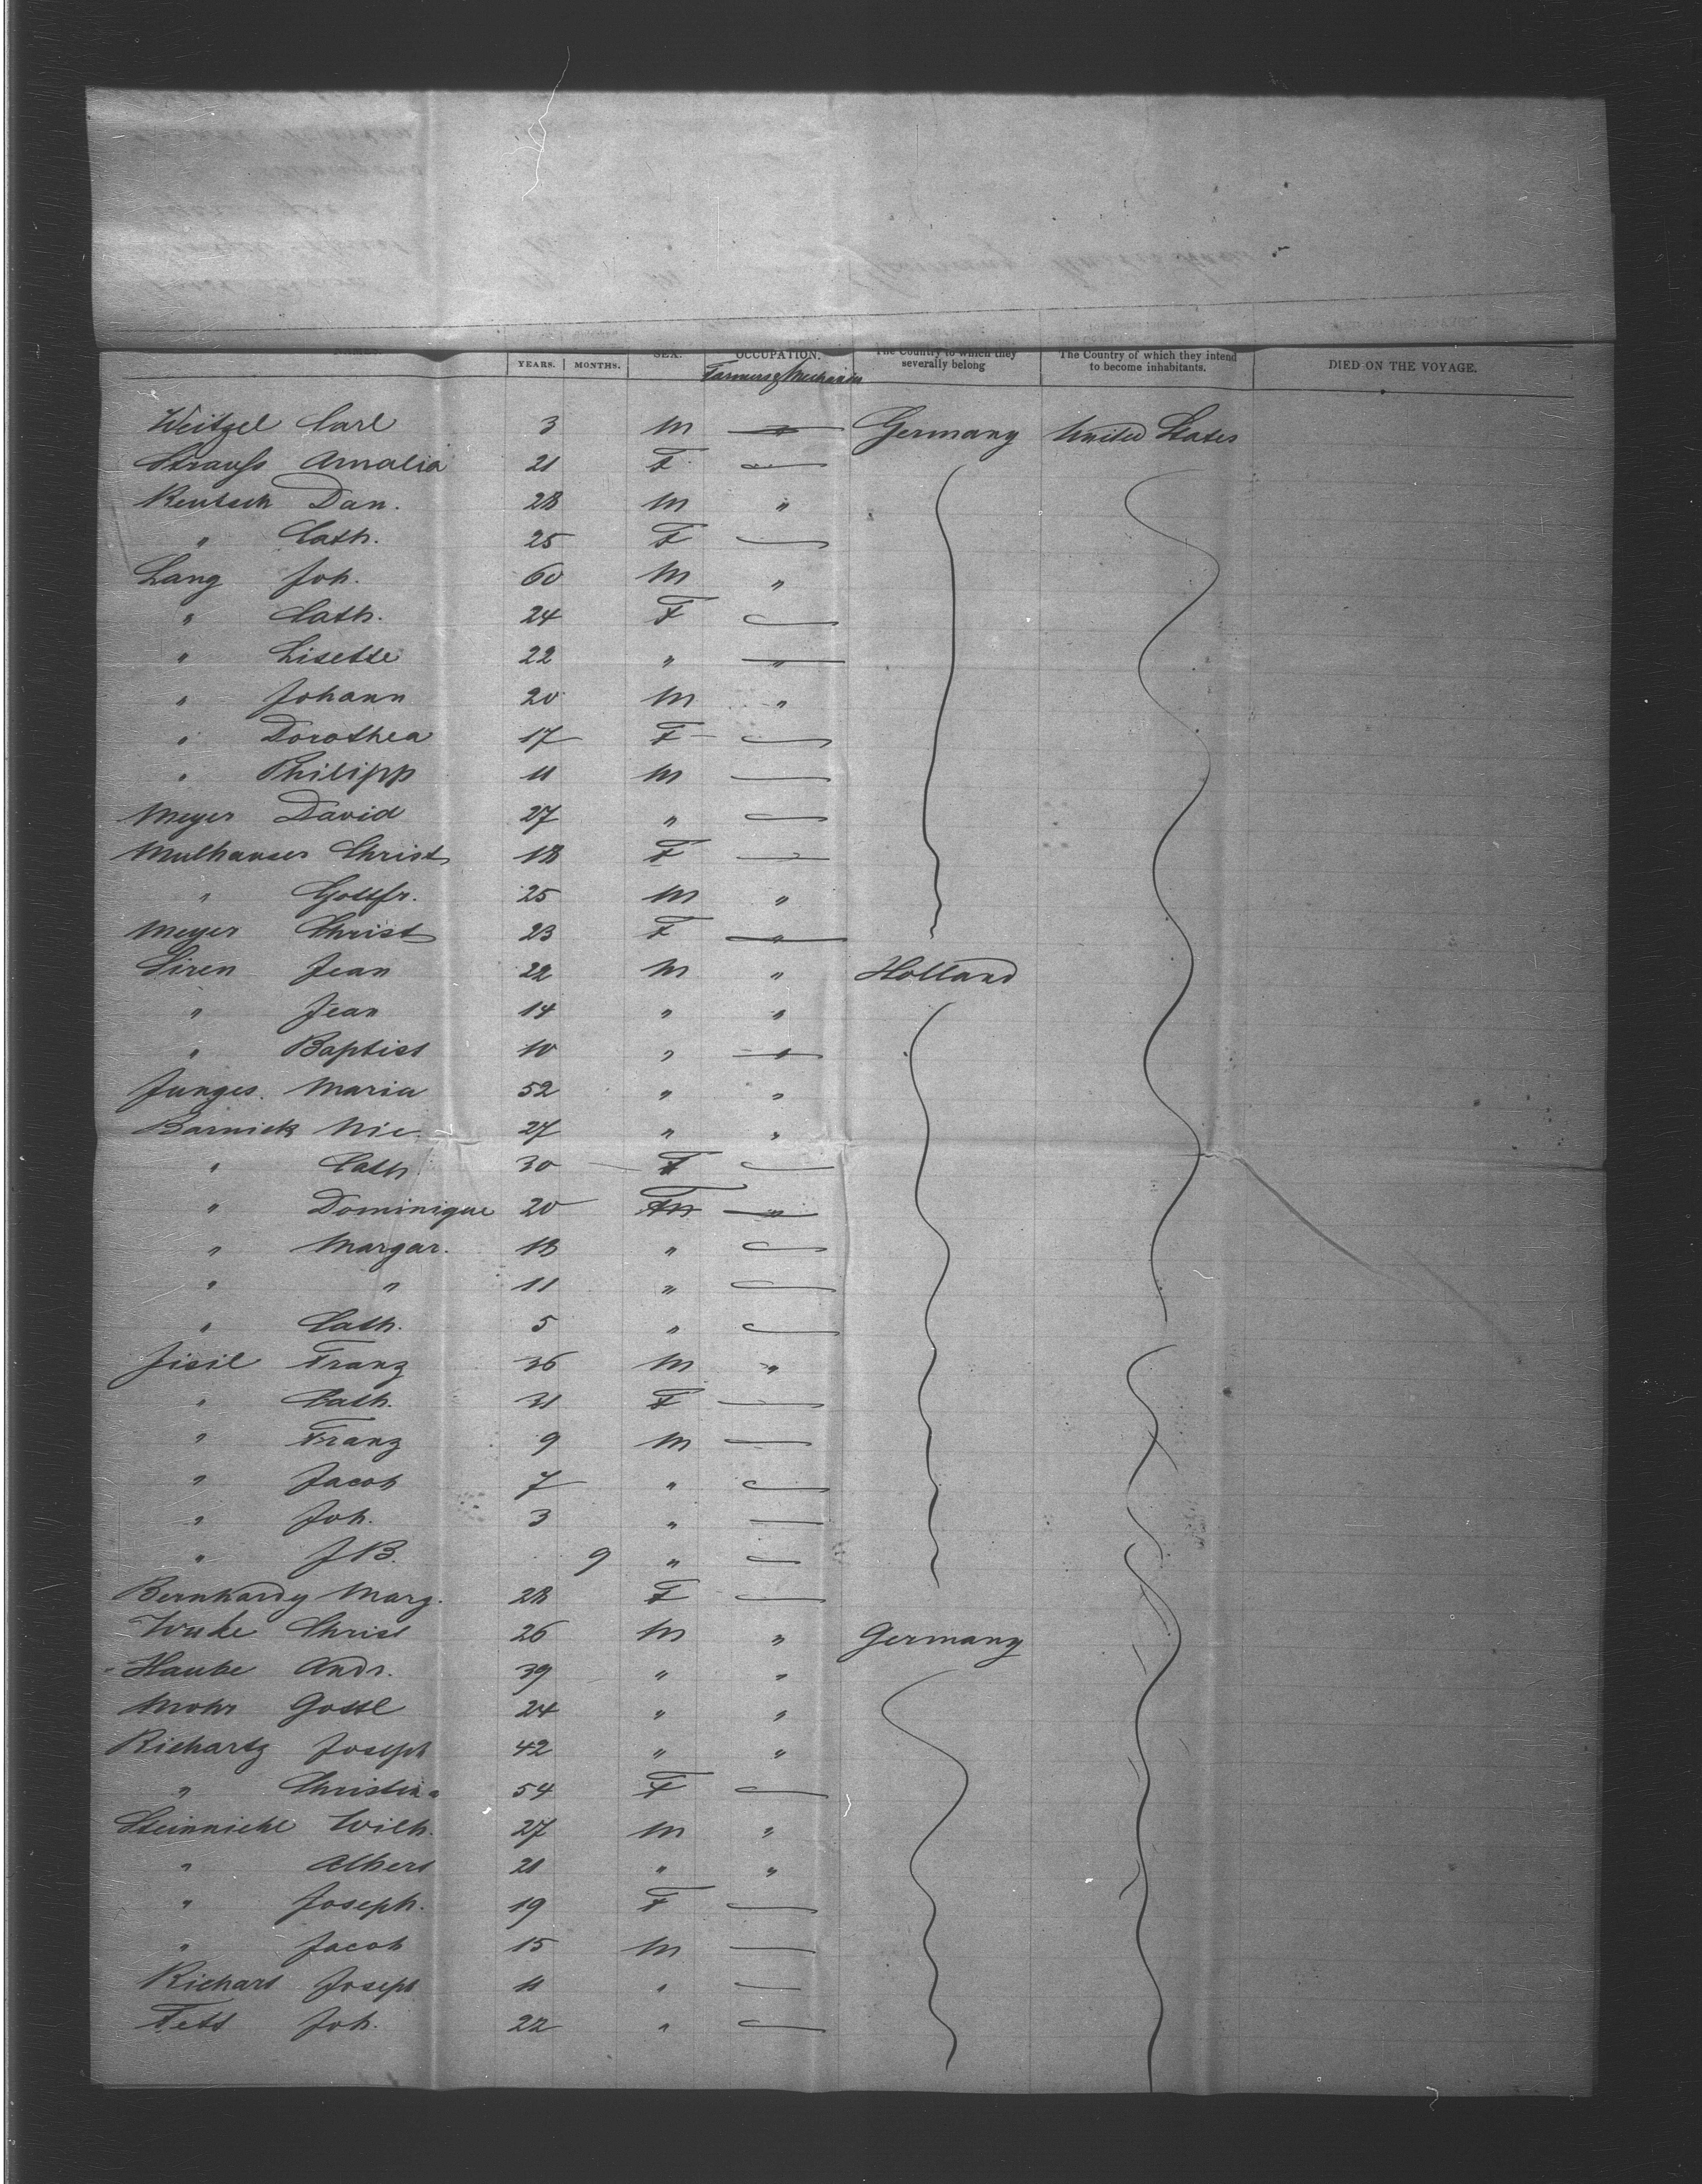 YEARS. MONTHS. SEX. OCCUPATION. The Country to which they severally belong The Country of which they intend to become inhabitants. DIED ON THE VOYAGE.
Farmers & Mechanics
Weitzel Carl 3 M " Germany United States
Strauss Amalia 21 F
Rentsch Dan. 28 M "
" Cath. 25 F
Lang Joh. 60 M "
" Cath. 24 F
" Lisette 22 " "
" Johann 20 M "
" Dorothea 17 F
" Philipp 11 M
Meyer David 27 "
Mulhauser Christ 18 F
" Gottfr. 25 M "
Meyer Christ 23 F "
Siren Jean 22 M " Holland
" Jean 14 " "
" Baptist 10 " "
Junges Maria 52 " "
Barnick Nic. 27 " "
" Cath 30 F
" Dominique 20 "
" Margar. 18 "
" " 11 "
" Cath. 5 "
Jisil Franz 36 M "
" Cath. 31 F
" Franz 9 M
" Jacob 7 "
" Joh. 3 "
" J B. 9 "
Bernhardy Marg. 28 F
Christ 26 M " Germany
Haube Andr. 39 " "
Mohr Gottl 24 " "
Richartz Joseph 42 " "
" Christina 54 F
Steinnichl Wilh. 27 M "
" Albert 21 " "
" Joseph. 19 F
" Jacob 15 M
Richart Joseph 11 "
Fett Joh. 22 "